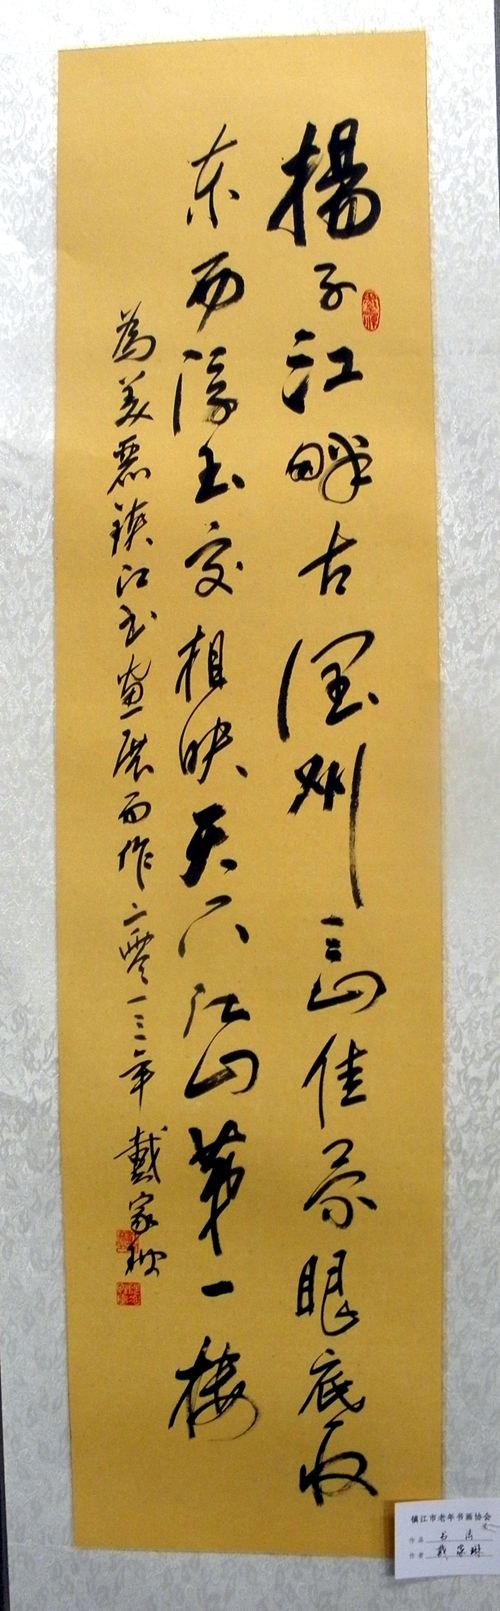 揚子江畔古潤州三山佳景眼底收
东西浮玉交相映天下江山第一楼
為美麗鎮江书畫展而作二零一三年戴家琳
镇江市老年书画协会
作品 书法
作者 戴家琳